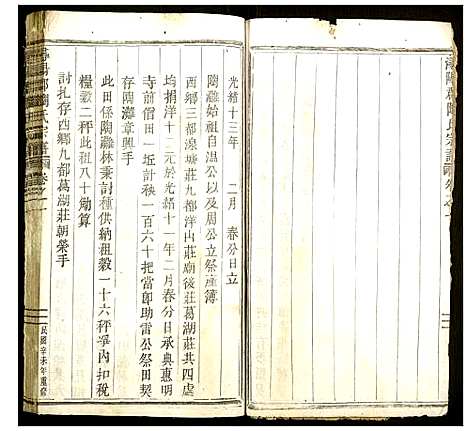 潯陽郡陶氏宗譜
光緒十三年 二月 春分日立
陶灘始祖自溫公以及周公立祭產簿
西鄉三都湟塘莊九都洋山莊廟後莊葛湖莊共四處
均捐洋十二元於光緒十一年二月春分日承典惠明
寺前僧田一坵計秧一百六十把當卽助雷公祭田契
存陶灘章興手
此田係陶灘林秉討種供納租穀一十六秤爭內扣稅
糧穀二秤此祖八十觔算
討扎存西鄉九都葛湖莊朝榮手
民國辛未年重修